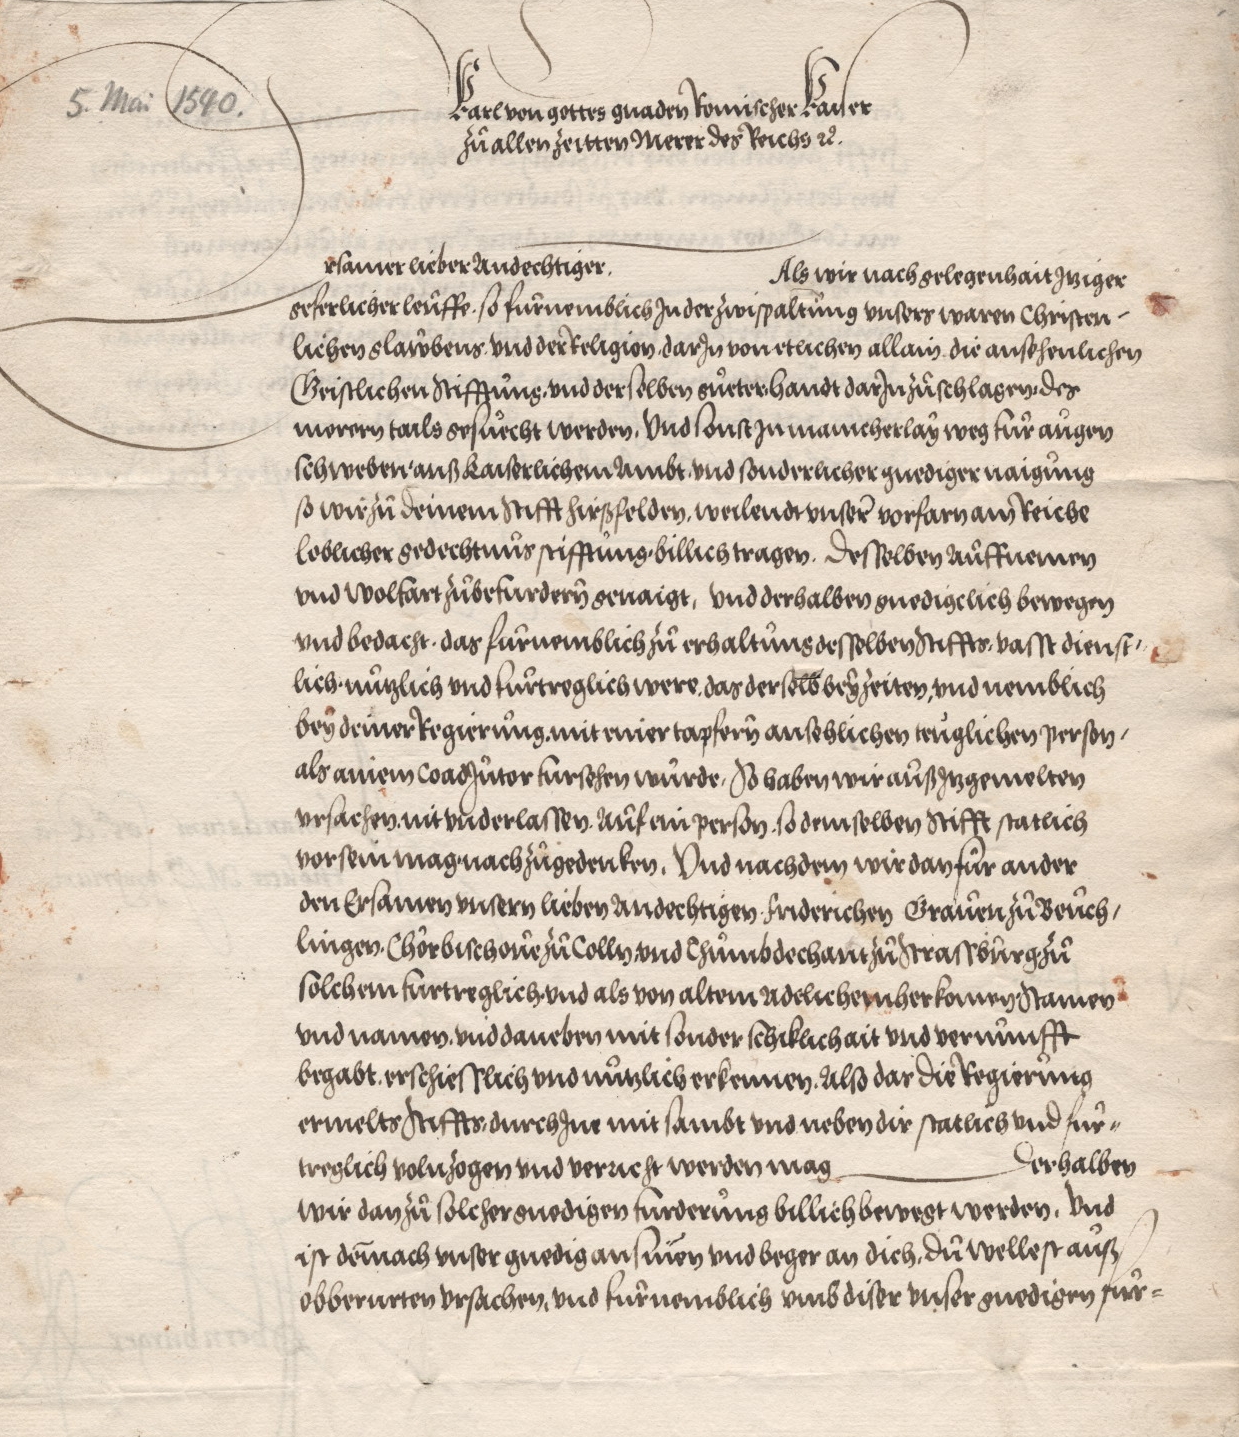 5. Mai 1540.
Karl von gottes gnaden Romischer Kaiser
zů allen zeitten Merer des Reichs ꝛc.
Ersamer lieber Andechtiger. Als wir nach gelegenhait Itziger
geferlicher leůffe, so fůrnemblich In der zwispaltůng vnsers waren Christen-
lichen glaůbens, vnd der Religion, darIn von etlichen allain die ansehenlichen
Geistlichen Stifftůng, vnd derselben gůeter, handt darIn zůschlagen, des
merern tails gesůecht werden, Vnd sonst In mancherlaÿ weg fůr aůgen
schweben, auß Kaiserlichem Ambt, vnd sonderlicher gnediger naigůng
so wir zů deinem Stifft Hirßfelden, weilendt vnser vorfarn am Reiche
loblicher gedechtnůs stifftůng, billich tragen. Desselben Aůffnemen
vnd Wolfart zůbefurdern genaigt, vnd derhalben gnediglich bewegen
vnd bedacht, das fůrnemblich zů erhaltůng desselben Stiffts, vasst dienst-
lich, nůtzlich vnd fůrtreglich were, das derselb beÿ zeiten, vnd nemblich
beÿ deiner Regierůng, mit einer tapfern ansehlichen teůglichen person,
als ainem CoadIůtor fursehen wůrde, So haben wir aůß Itzgemelten
vrsachen, nit vnderlassen, Aůf ein person, so demselben Stifft statlich
vorsein mag, nachzůgedenken. Vnd nachdem wir dan fůr ander
den Ersamen vnsern lieben Andechtigen Friderichen Graůen zů Beůch-
lingen, Chorbischoůe zů Colln, vnd Thůmbdechant zů Strassbůrg, zů
solchem furtreglich, vnd als von altem Adelichem herkomen, Stamen
vnd namen, vnd daneben mit sonder schiklichait vnd vernůnfft
begabt, erschiesslich vnd nůtzlich erkennen, Also dar die Regierůng
ermelts Stiffts, durch Ine mit sambt vnd neben dir statlich vnd fůr-
treglich volnzogen vnd verricht werden mag Derhalben
wir dan zů solcher gnedigen furderůng billich bewegt werden. Vnd
ist demnach vnser gnedig ansinnen vnd beger an dich, Dů wellest aůß
obberurten vrsachen, vnd fůrnemblich vmb diser vnser gnedigen fůr-